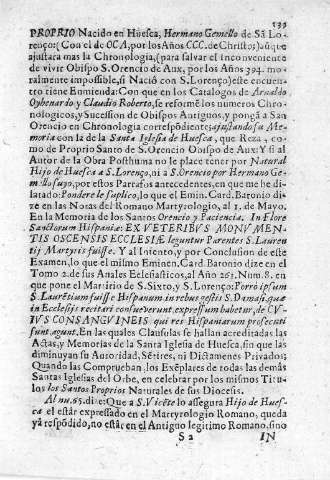 139
PROPRIO Nacido en Huesca, Hermano Gemello de Sã Lo-
renço: (Con el de OCA, por los Años CCC. de Christo) aũque
ajustara mas la Chronologia, (para salvar el inconveniente
de vivir Obispo S. Orencio de Aux, por los Años 394. mo-
ralmente impossible, si Naciò con S. Lorenço) este encuen
tro tiene Enmienda: Con que en los Catalogos de Arnaldo
Oyhenardo y Claudio Roberto, se reforme los numeros Chro-
nologicos, y Sucession de Obispos Antiguos, y pongã a San
Orencio en Chronologia correspõdiente; ajustando su Me-
moria con la de la Santa Iglesia de Huesca, que Reza, co-
mo de Proprio Santo de S. Orencio Obispo de Aux: Y si al
Autor de la Obra Posthuma no le place tener por Natural
Hijo de Huesca a S. Lorenço, ni a S. Orencio por Hermano Ge-
mello suyo, por estos Parrafos antecedentes, en que me he di-
latado: Pondere le suplico, lo que el Emin. Card. Baronio di-
ze en las Notas del Romano Martyrologio, al 1. de Mayo.
En la Memoria de los Santos Orencio y Paciencia. In Flore
Sanctorum Hispaniæ: EX VETERIBVS MONVMEN-
TIS OSCENSIS ECCLESIÆ leguntur Parentes S. Lauren
tij Martyris fuisse. Y al Intento, y por Conclusion de este
Examen, lo que el mismo Eminen. Card. Baronio dize en el
Tomo 2. de sus Anales Eclesiasticos, al Año 261. Num. 8. en
que pone el Martirio de S. Sixto, y S. Lorenço: Porrò ipsum
S. Laurẽtium fuisse Hispanum in rebus gestis S. Damasi, quæ
in Ecclesijs recitari consueverunt, expressum habetur, de CV-
IVS CONSANGVINEIS qui res Hispaniarum prosecuti
sunt, agunt. En las quales Clausulas se hallan acreditadas las
Actas, y Memorias de la Santa Iglesia de Huesca, sin que las
diminuyan su Autoridad, Sẽtires, ni Dictamenes Privados;
Quando las Comprueban, los Exẽplares de todas las demàs
Santas Iglesias del Orbe, en celebrar por los mismos Titu-
los los Santos Proprios Naturales de sus Diocesis.
Al nu. 65. dize: Que a S. Vicẽte lo assegura Hijo de Hues-
ca el estàr expressado en el Martyrologio Romano, queda
ya respõdido, no estàr en el Antiguo legitimo Romano, sino
S 2 IN